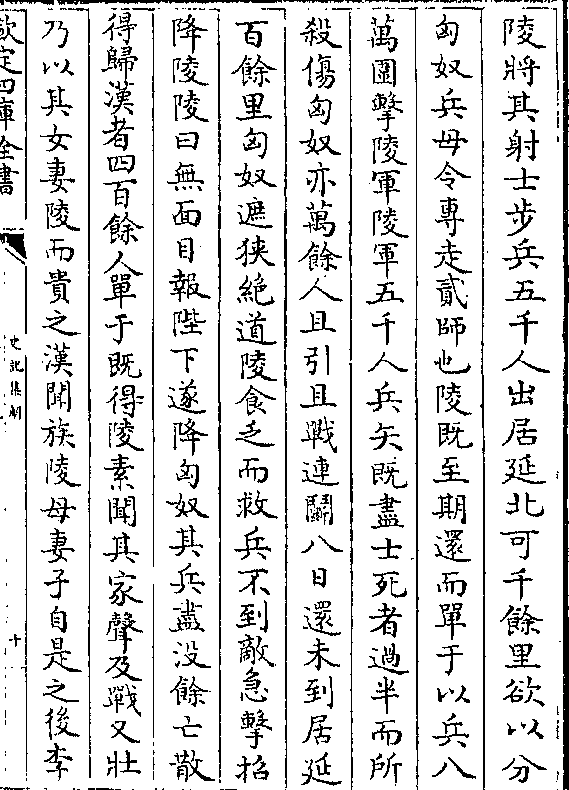 陵將其射士步兵五千人出居延北可千餘里欲以分
匈奴兵毋令專走貳師也陵既至期還而單于以兵八
萬圍擊陵軍陵軍五千人兵矢既盡士死者過半而所
殺傷匈奴亦萬餘人且引且戰連鬭八日還未到居延
百餘里匈奴遮狹絶道陵食乏而救兵不到敵急擊招
降陵陵曰無面目報陛下遂降匈奴其兵盡没餘亡散
得歸漢者四百餘人單于既得陵素聞其家聲及戰又壯
乃以其女妻陵而貴之漢聞族陵母妻子自是之後李
欽定四庫全書
史記集解
十